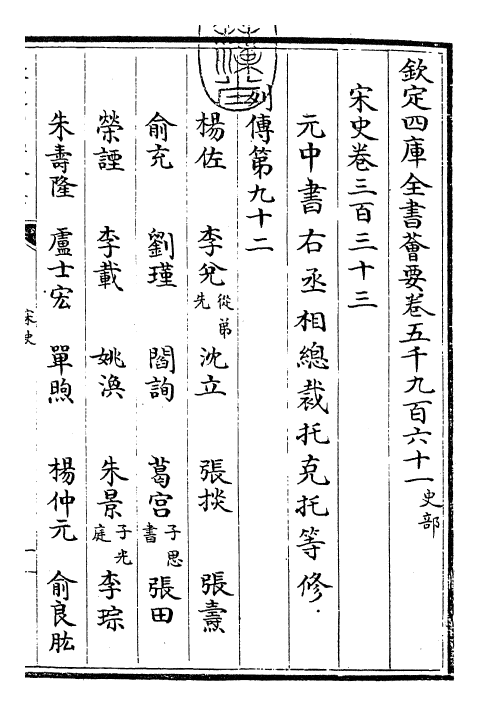 欽定四庫全書薈要卷五千九百六十一 史部
宋史卷三百三十三
元中書右丞相總裁托克托等修
列傳第九十二
楊佐 李兊 從弟先 沈立 張掞 張燾
俞充 劉瑾 閻詢 葛宫 子思書 張田
榮諲 李載 姚渙 朱景 子光庭 李琮
朱壽隆 盧士宏 單煦 楊仲元 俞良肱
宋史
一